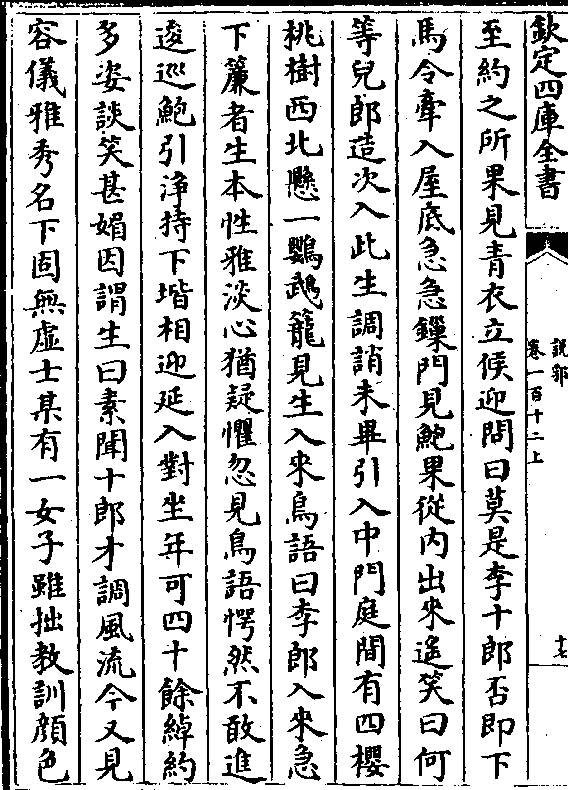 欽定四庫全書
說郛
卷一百十二上
十七
至約之所果見青衣立候迎問曰莫是李十郎否即下
馬令牽入屋底急急鏁門見鮑果從内出來遥笑曰何
等兒郎造次入此生調誚未畢引入中門庭間有四櫻
桃樹西北懸一鸚鵡籠見生入來鳥語曰李郎入來急
下簾者生本性雅淡心猶疑懼忽見鳥語愕然不敢進
逡巡鮑引淨持下堦相迎延入對坐年可四十餘綽約
多姿談笑甚媚因謂生曰素聞十郎才調風流今又見
容儀雅秀名下固無虛士某有一女子雖拙教訓顔色